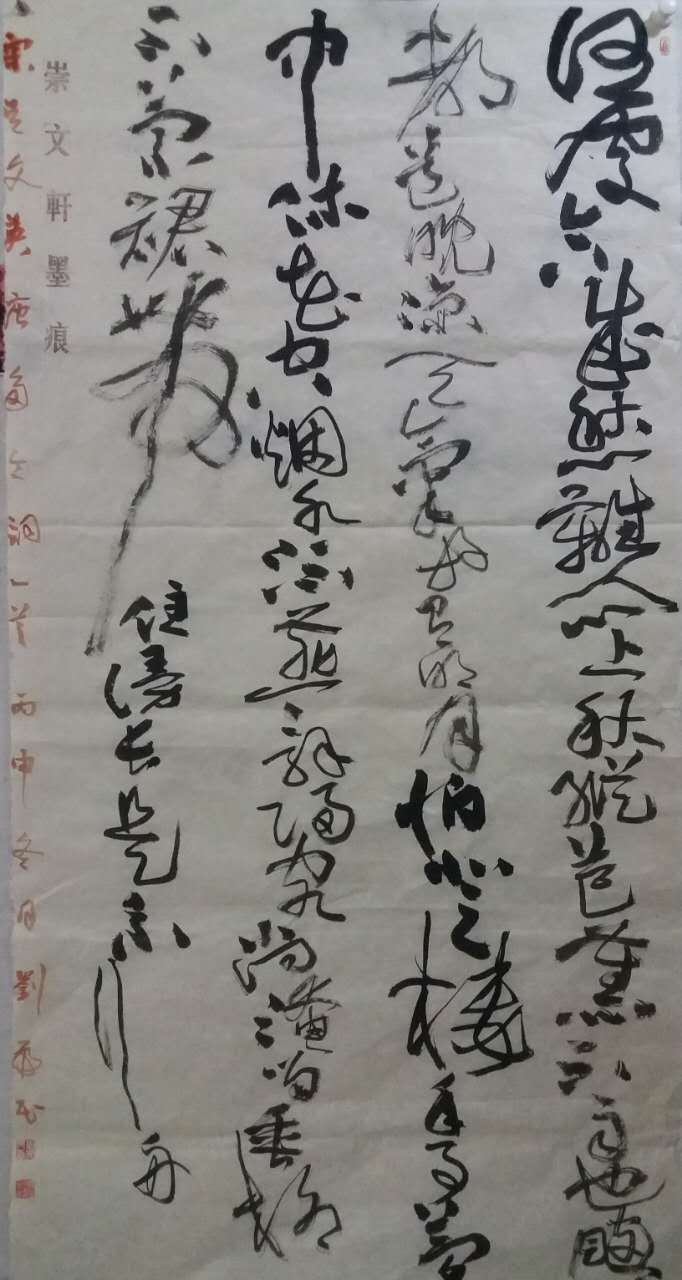 何處合成愁離人心上秋縱芭蕉不雨也颼
都道晚涼天氣好有明月怕登樓年事夢
中休花空烟水流燕辭歸客尚淹留垂柳
不縈裙帶
住漫長是系行舟
崇文軒墨痕
宋吴文英唐多令詞一首丙申冬月劉